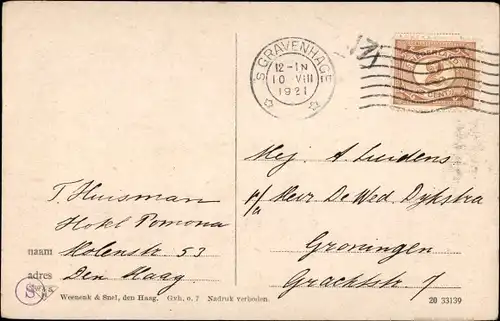 'S GRAVENHAGE
12-1N
10 VIII
1921
CENT
T. Huisman
Hotel Pomona
naam Molenstr 53
adres Den Haag.
Mej. A. Luidens
p/a Heer De Wed. Dijkstra
Groningen
Grachtstr. 7
Weenenk & Snel, den Haag. Gxh. o. 7 Nadruk verboden.
20 33139